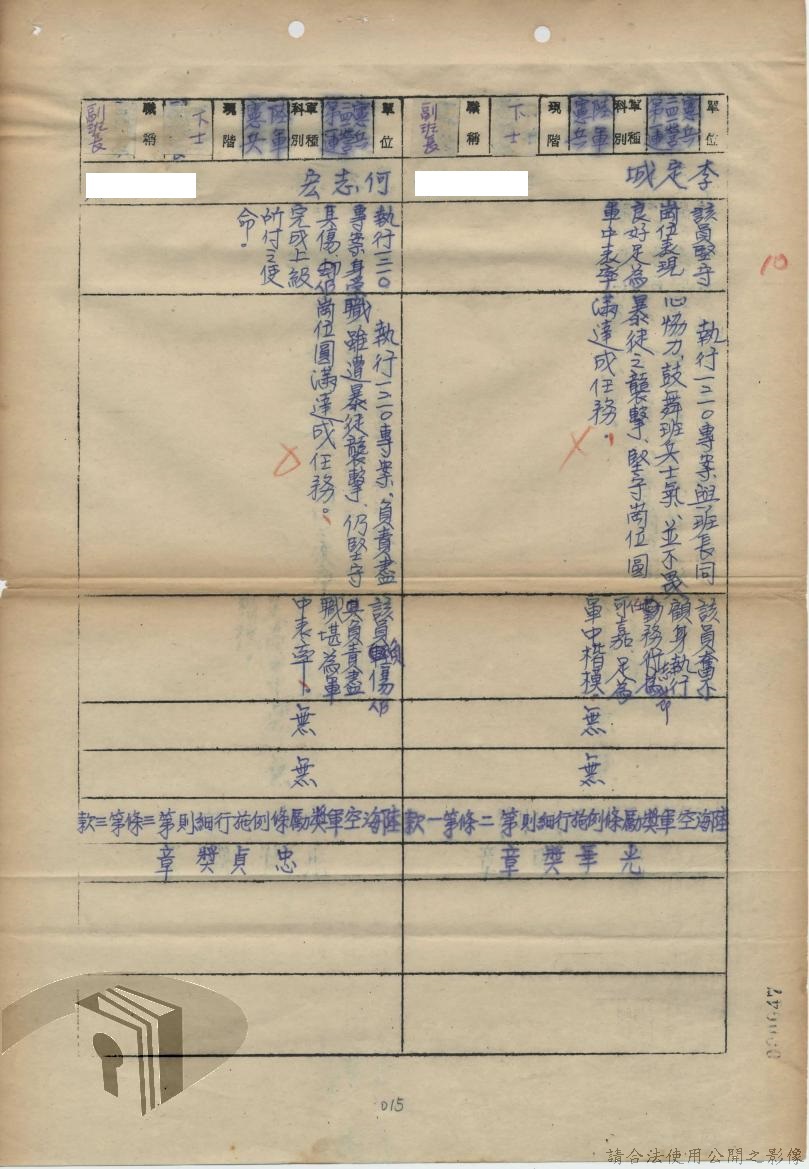 單位
憲兵
二四一營
第一連
軍種
科別
陸軍
憲兵
現階
下士
職稱
副班長
李定城
該員堅守
崗位表現
良好足為
軍中表率
執行一二一〇專案與班長同
心協力、鼓舞班兵士氣、並不畏
暴徒之襲擊、堅守崗位圓
滿達成任務。
該員奮不
顧身執行
勤務
可嘉、足為
軍中楷模
無
無
陸海空軍獎勵條例施行細則第二條第一款
光華獎章
單位
憲兵
第一連
軍種
科別
陸軍
憲兵
現階
下士
職稱
副班長
何志宏
執行一二一〇
專案身受
其傷
完成上級
所付之使
命。
執行一二一〇專案、負責盡
職雖遭暴徒襲擊、仍堅守
崗位圓滿達成任務。
該員負傷仍
其負責盡
職堪為軍
中表率、
無
無
陸海空軍獎勵條例施行細則第三條第三款
忠貞獎章
10
015
請合法使用公開之影像